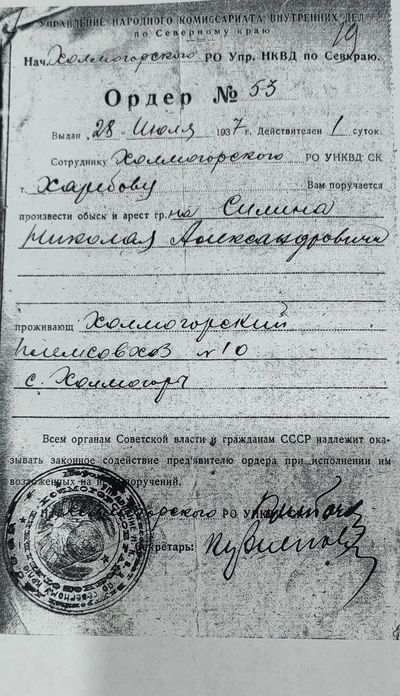 УПРАВЛЕНИЕ НАРОДНОГО КОМИССАРИАТА ВНУТРЕННИХ ДЕЛ
по Северному краю
19
Нач. Холмогорского РО Упр. НКВД по Севкраю.
Ордер № 53
Выдан „28" Июля 1937 г. Действителен 1 суток.
Сотруднику Холмогорского РО УНКВД СК
т. Харибову Вам поручается
произвести обыск и арест гр. на Силина
Николая Александровича
проживающ Холмогорский
племсовхоз №10
с. Холмогоры
Всем органам Советской власти и гражданам СССР надлежит ока-
зывать законное содействие пред'явителю ордера при исполнении им
возложенных на поручений.
РО
Секретарь: